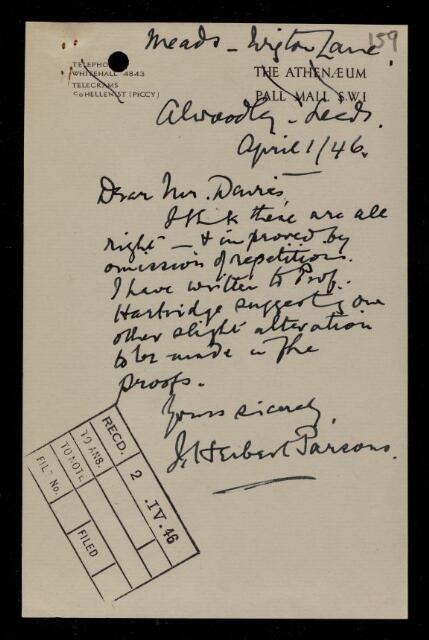 Meads – Wigton Lane,
159
TELEPHONE
WHITEHALL 4843
TELEGRAMS
HELLENIST (PICCY)
THE ATHENÆUM
PALL MALL S.W.1
Alwoodley – Leeds.
April 1/46.
Dear Mr. Davies,
I think these are all
right – & improved by
omission of repetitions.
I have written to Prof.
Hartridge suggesting one
other slight alteration
to be made in the
proofs.
Yours sincerely,
J Herbert Parsons.
RECD. 2 .IV.46
TO ANS.
TO NOTE
FILE No. FILED